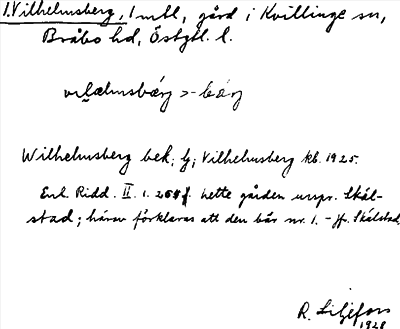 1. Vilhelmsberg, 1 mtl, gård i Kvillinge sn,
Bråbo hd, Östgtl. l.
vɩlhælmsbærj >-bärj
Wilhelmsberg bek; Vilhelmsberg kb. 1925.
Enl. Ridd. II. 1. hette gården urspr. Skäl-
stad; härav förklaras att den bär nr. 1. - Jfr. Skälstad.
R. Liljefors
1928